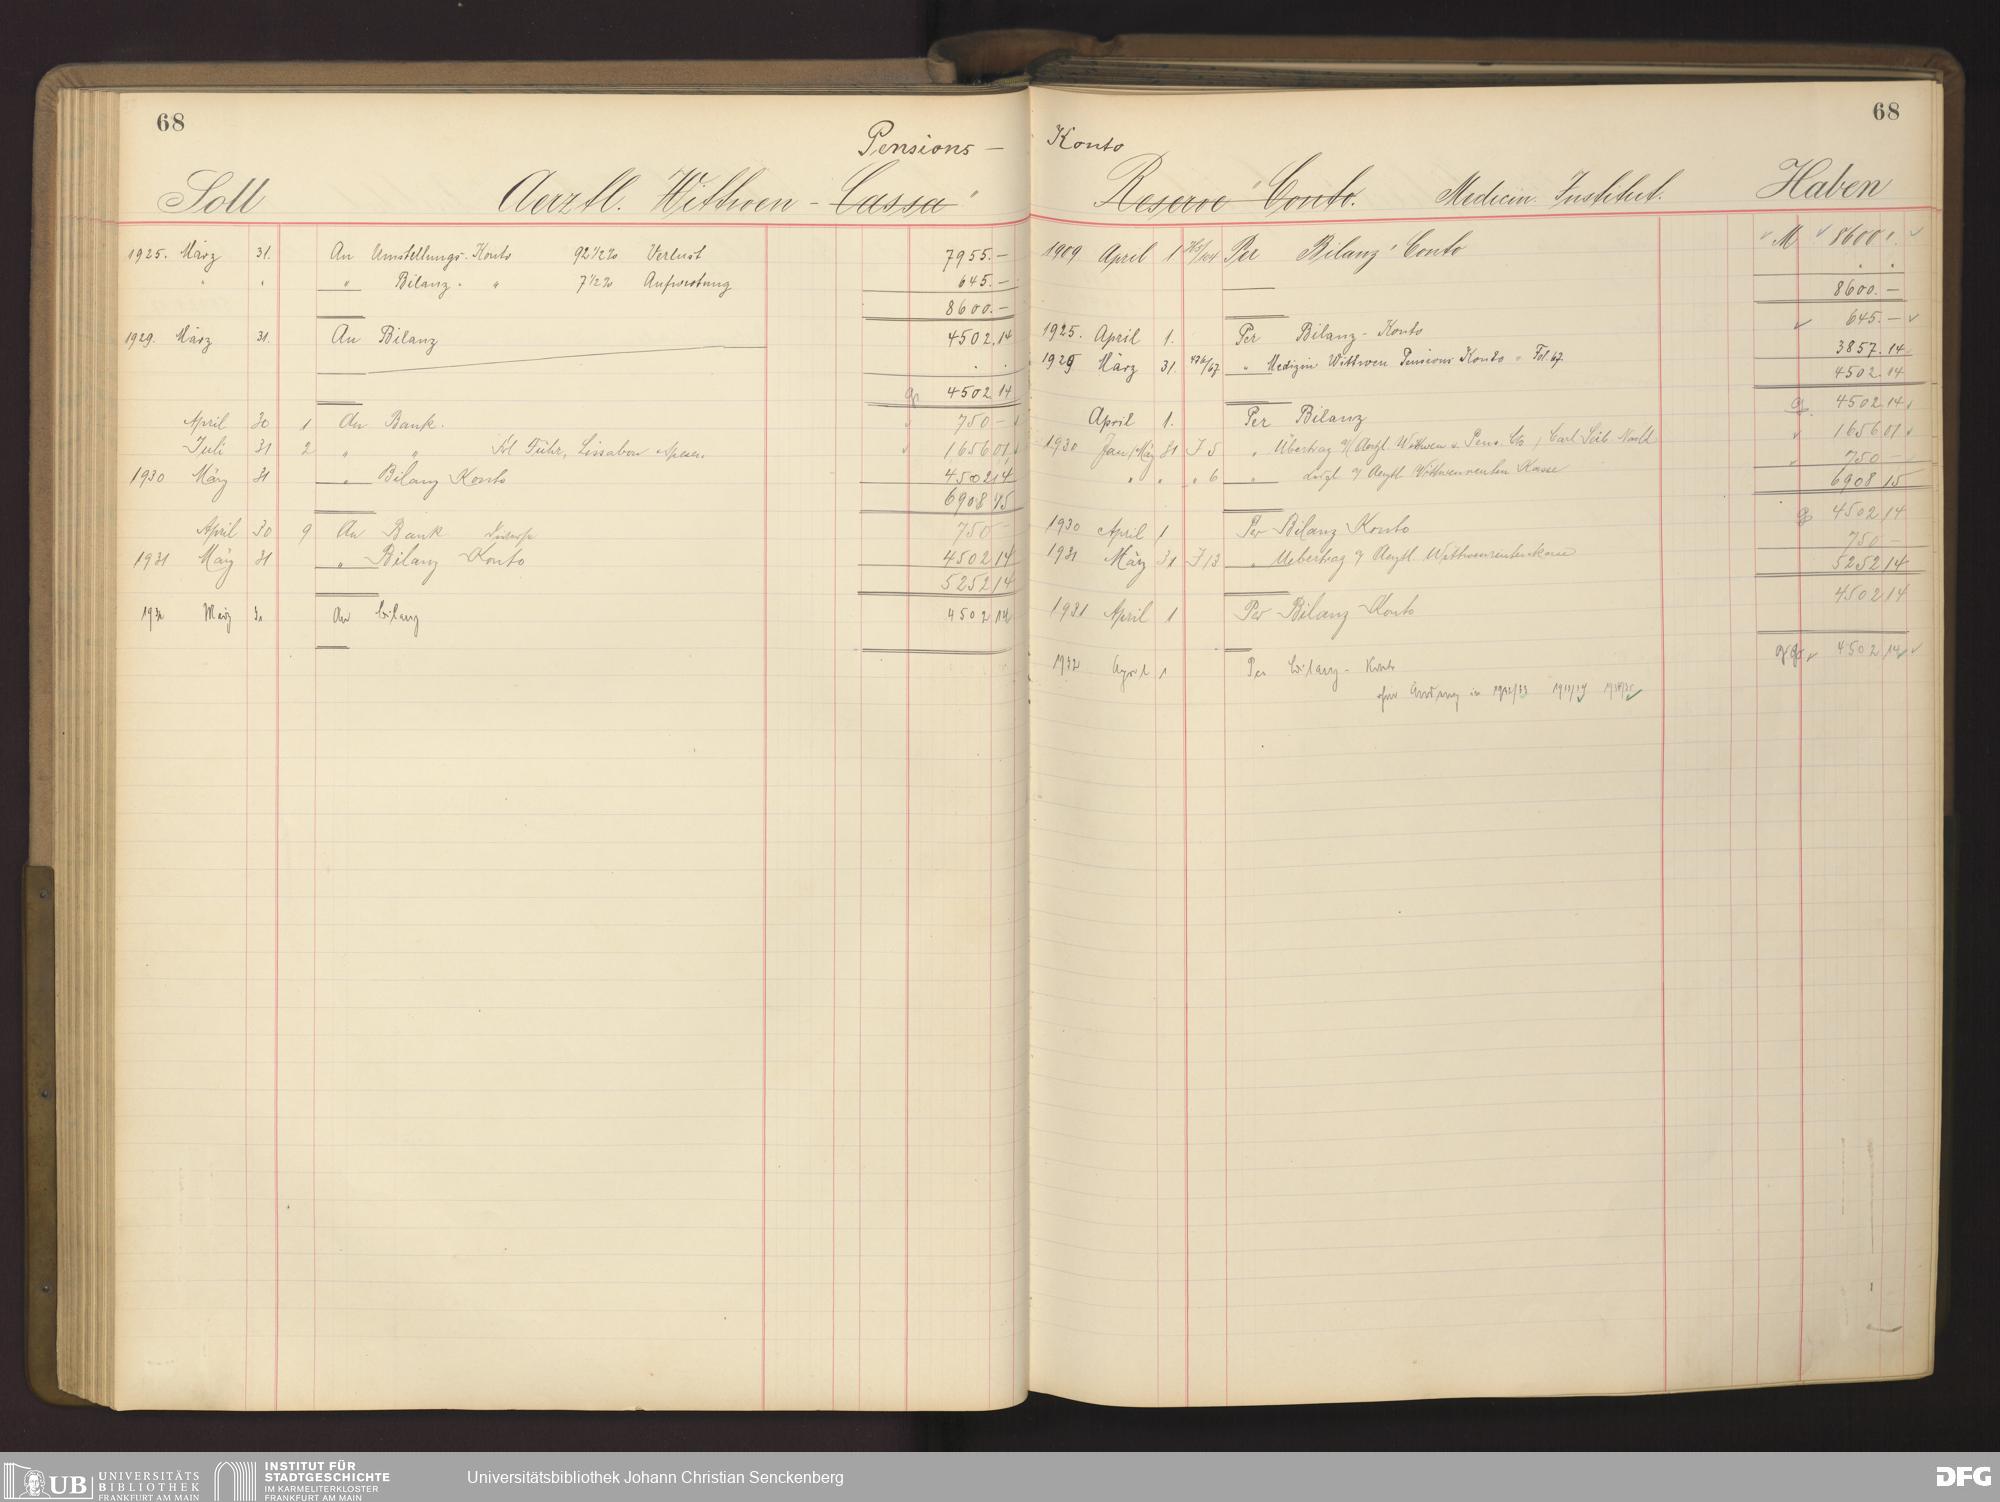 68
Pensions –
Soll Aerztl. Witwen - Cassa
1925. März 31. An Umstellungs-Konto 92 1/2 % Verlust 7955.—
" " " Bilanz- " 7 1/2 % Aufwertung 645.—
8600.—
1929. März 31. An Bilanz 4502.14
4502 14
April 30 1 An Bank. 750 —
Juli 31 2 " " Lissabon 1656 01
1930 März 31 " Bilanz Konto 4502 14
6908 15
April 30 9 An Bank 750 —
1931 März 31 " Bilanz Konto 4502 14
5252 14
März An Bilanz 4502 14
68
Konto
Reserve Conto. Medicin. Institut. Haben
1909 April 1 Per Bilanz Conto M 8600
8600.—
1925. April 1. Per Bilanz-Konto 645.—
1929 März 31. " Medizin Wittwen Pensions Konto Fol. 67. 3857.14
4502.14
April 1. Per Bilanz 4502 14
1930 Jan/März 31 J 5 " Übertrag Aerztl. Wittwen Carl 1656 01
" " " 6 " Aerztl. Wittwenrenten Kasse 750 —
6908 15
1930 April 1 Per Bilanz Konto 4502 14
1931 März 31 J 13 " Uebertrag Aerztl. Wittwenrentenkasse 750 —
5252 14
1931 April 1 Per Bilanz-Konto 4502 14
1932 April 1 Per Bilanz - Konto 4502 14
in 1932/33
UB UNIVERSITÄTS
BIBLIOTHEK
FRANKFURT AM MAIN
INSTITUT FÜR
STADTGESCHICHTE
IM KARMELITERKLOSTER
FRANKFURT AM MAIN
Universitätsbibliothek Johann Christian Senckenberg
DFG